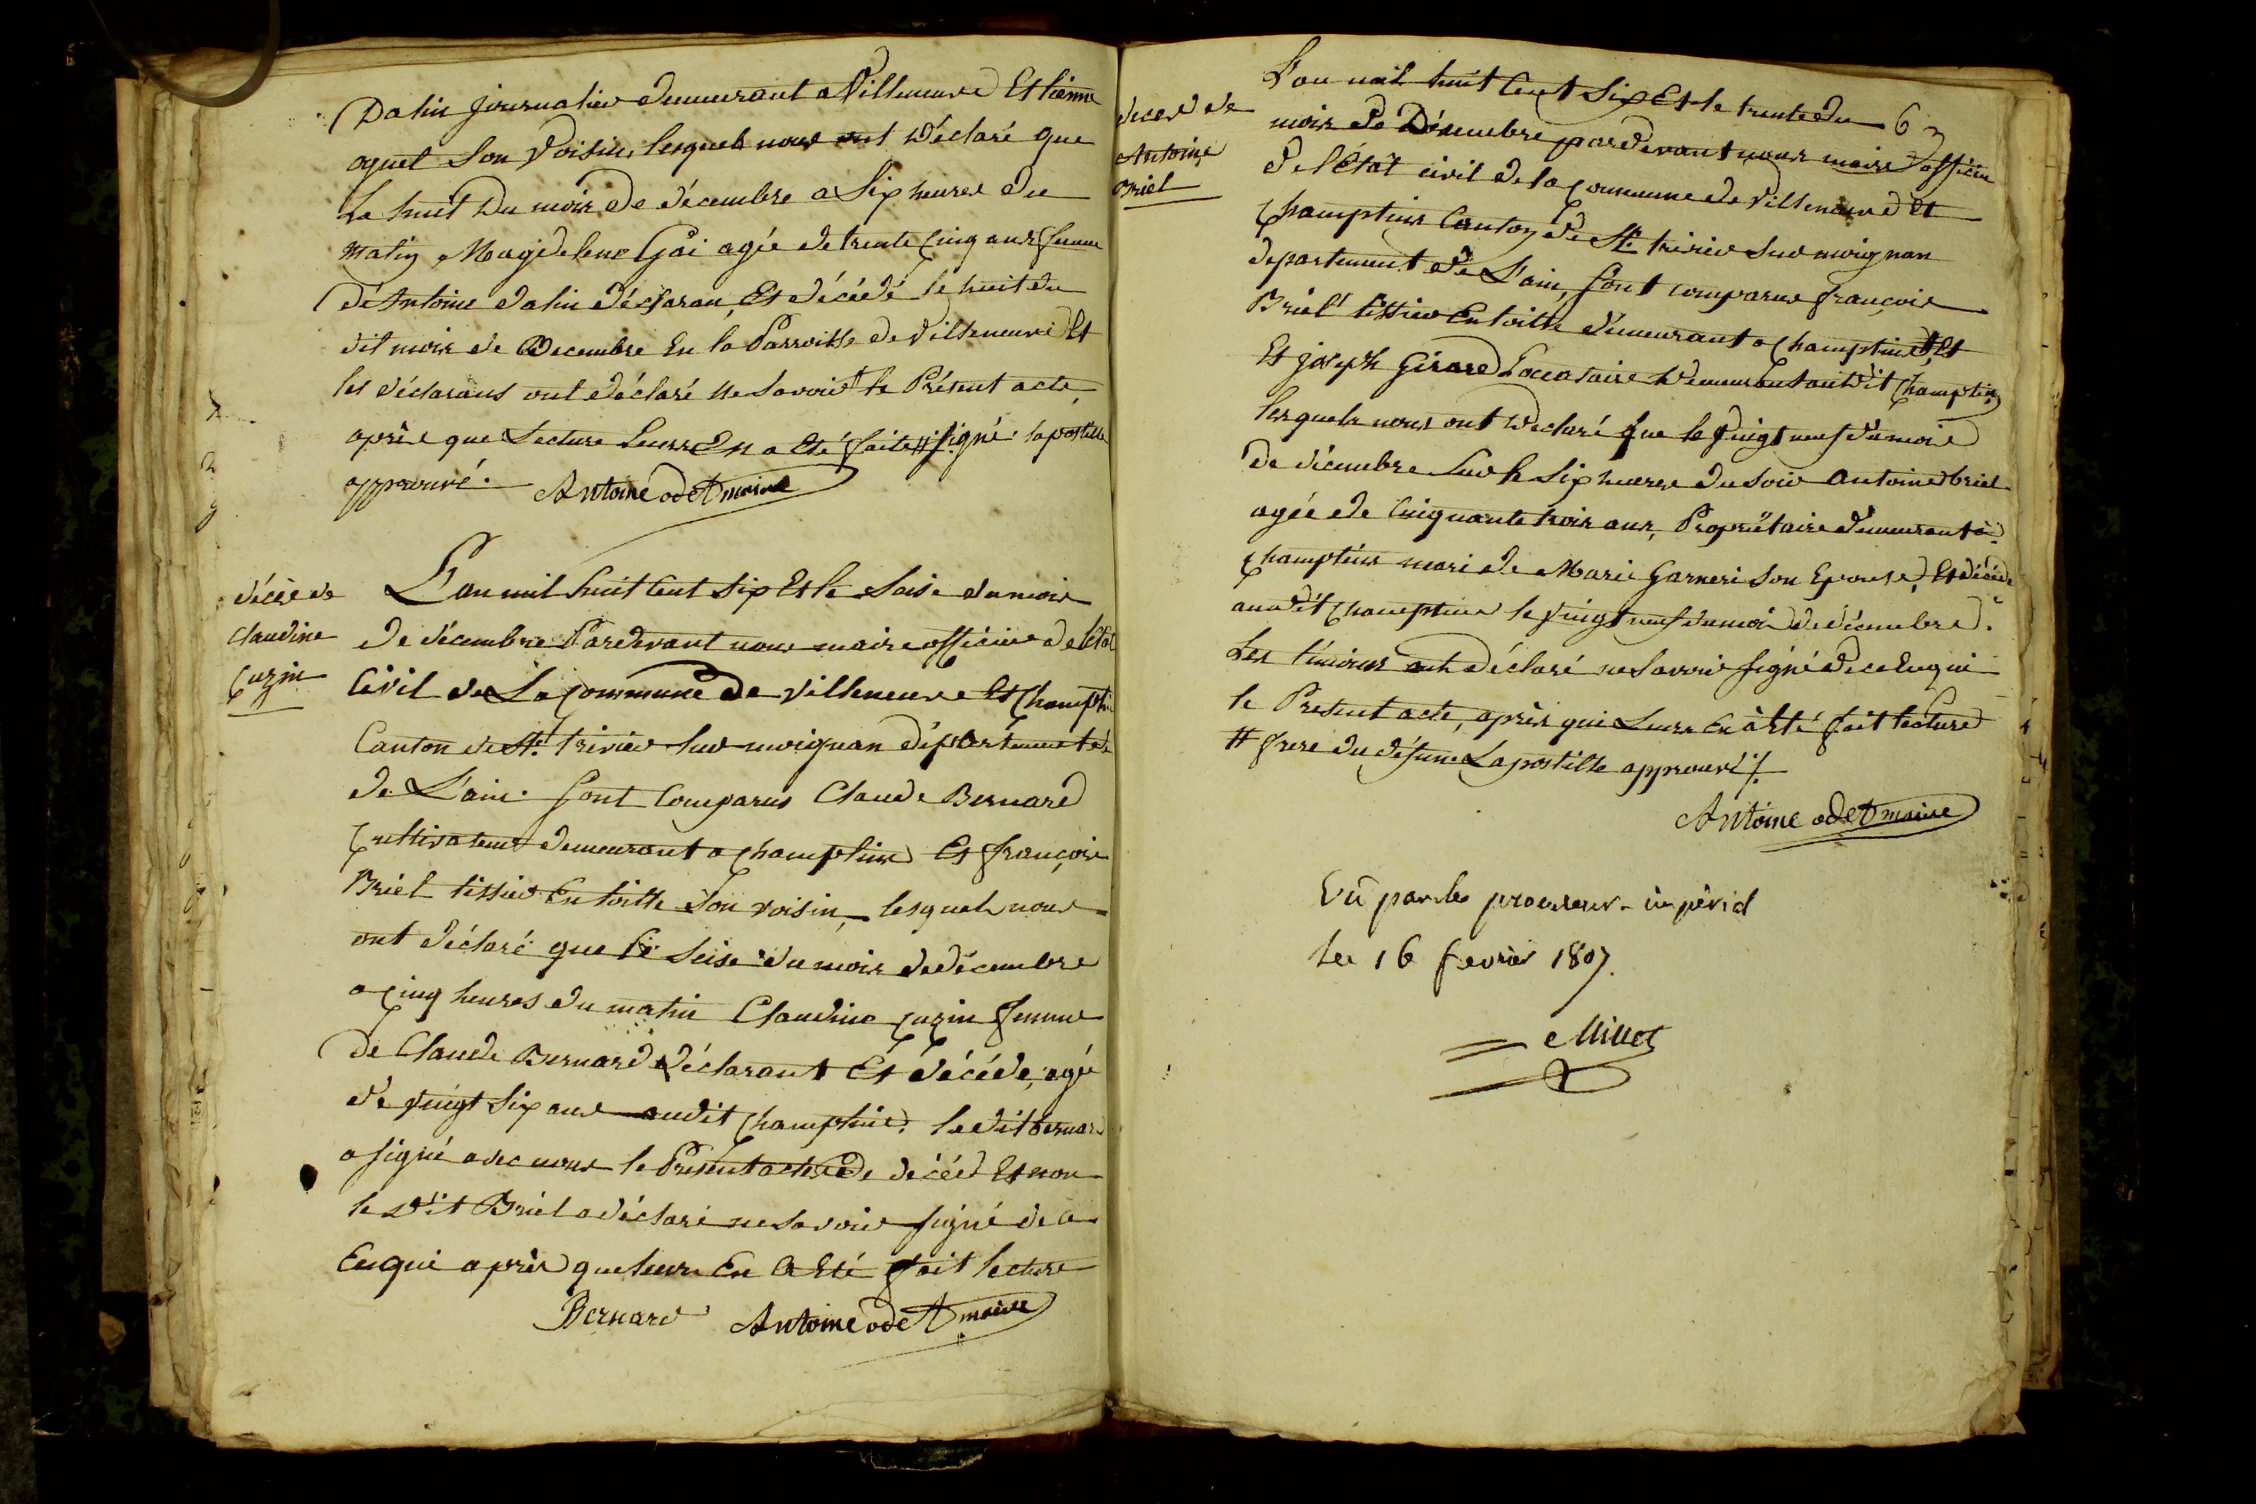 Dalin journalier demeurant a Villeneuve Et Etienne
aquet Son Voisin, lesquels nous ont Déclaré que
Le huit Du mois De décembre a Six heures du
matin Magdelene Gai agée de trente Cinq ans femme
de Antoine dalin déclaran, Et décédé le huit du
dit mois de Decembre En la Parroisse de Villeneuve Et
les déclarans ont déclaré ne Savoir le Présent acte,
après que Lecture Leurs En a Eté faite # signé lapostille
approuvé. Antoine odet maire
décès de
Claudine
Cuzin
L'an mil huit Cent Six Et le Seise du mois
de décembre Pardevant nous maire officier de létat
Civil de La Commune de Villeneuve Et Champtin
Canton de St. trivier Sur moignan département de
de L'ain. Sont Comparus Claude Bernard
Cultivateur demeurant a Champtin Et françois
Briel tissier En toille Son voisin, lesquels nous
ont déclaré que le Seise du mois de décembre
a Cinq heures du matin Claudine Cuzin femme
de Claude Bernard déclarant Et décédé, agé
de vingt Six ans audit Champtin. le dit bernard
a signé avec nous le Présent acte de décéd Et non
le dit Briel a déclaré ne Savoir signé de ce
Enqui après que leur En a Eté fait lecture
Bernard Antoine odet maire
deced de
Antoine
Briel
63
L'an mil huit Cent Six Et le trente du
mois de Décembre pardevant nous maire officier
de l'État civil de la Commune de Villeneuve Et
Champtin Canton de St. trivier Sur moignan
departement de L'ain, Sont comparus françois
Briel tissier En toille demeurant a Champtin # Et
Et joseph Girard Locataire demeurant audit Champtin
lesquels nous ont declaré que le vingt neuf du mois
de décembre Sur le Six heures du soir antoine briel
agée de Cinquante trois ans, Propriétaire demeurant à
Champtin mari de Marie Garneri Son Epouse, Et décédé
au dit Champtin le vingt neuf du moi de décembre.
Les témoins ont déclaré ne Savoir signé de ce Enqui
le Présent acte, après qui Leurs En a Eté fait lecture
# frere du défunt Lapostille approuvé ./.
Antoine odet maire
Vû par le procureur impérial
le 16 fevrier 1807.
Millet